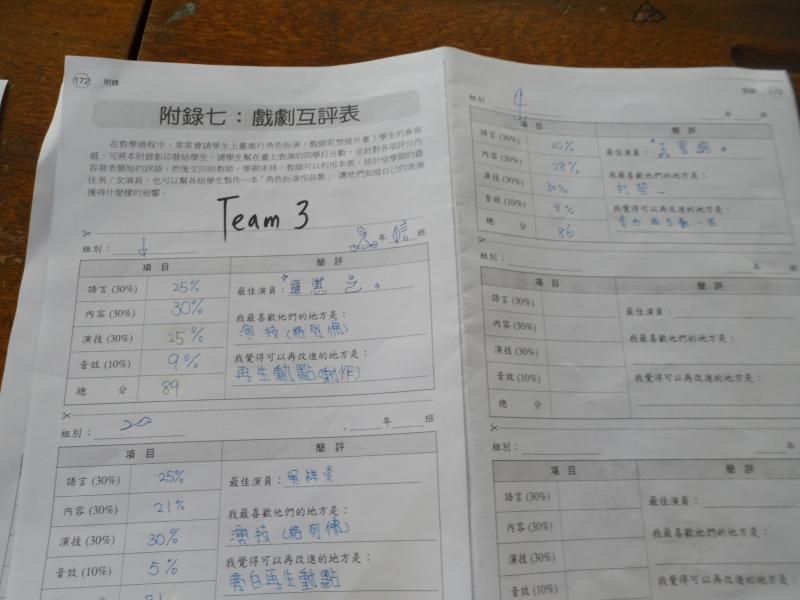 172 附錄
附錄七：戲劇互評表
在教學過程中，常常會請學生上臺進行角色扮演，教師若想提升臺下學生的參與
感，可將本附錄影印發給學生，請學生幫在臺上表演的同學打分數，並針對各項評分內
容發表簡短的評語，然後交回給教師。學期末時，教師可以利用本表，統計這學期的最
佳男/女演員，也可以幫各組學生製作一本「角色扮演作品集」，讓他們知道自己的表演
獲得什麼樣的迴響。
Team 3
組別： 1 年 信 班
項目 簡評
語言 (30%) 25% 最佳演員：
內容 (30%) 30% 我最喜歡他們的地方是：
演技 (30%) 25% 演技(格列佛)
音效 (10%) 9% 我覺得可以再改進的地方是：
總分 89 再生動點(動作)
組別： 年 班
項目 簡評
語言 (30%) 25% 最佳演員：吳祥炎
內容 (30%) 21% 我最喜歡他們的地方是：
演技 (30%) 30% 演技(格列佛)
音效 (10%) 5% 我覺得可以再改進的地方是：
旁白再生動點
附錄 173
組別： 年 班
項目 簡評
語言 (30%) 20% 最佳演員：
內容 (30%) 28% 我最喜歡他們的地方是：
演技 (30%) 30%
音效 (10%) 8% 我覺得可以再改進的地方是：
總分 86 旁白再生動一些
組別： 年 班
項目 簡評
語言 (30%) 最佳演員：
內容 (30%) 我最喜歡他們的地方是：
演技 (30%)
音效 (10%) 我覺得可以再改進的地方是：
總分
組別： 年 班
項目 簡評
語言 (30%) 最佳演員：
內容 (30%) 我最喜歡他們的地方是：
演技 (30%)
音效 (10%) 我覺得可以再改進的地方是：